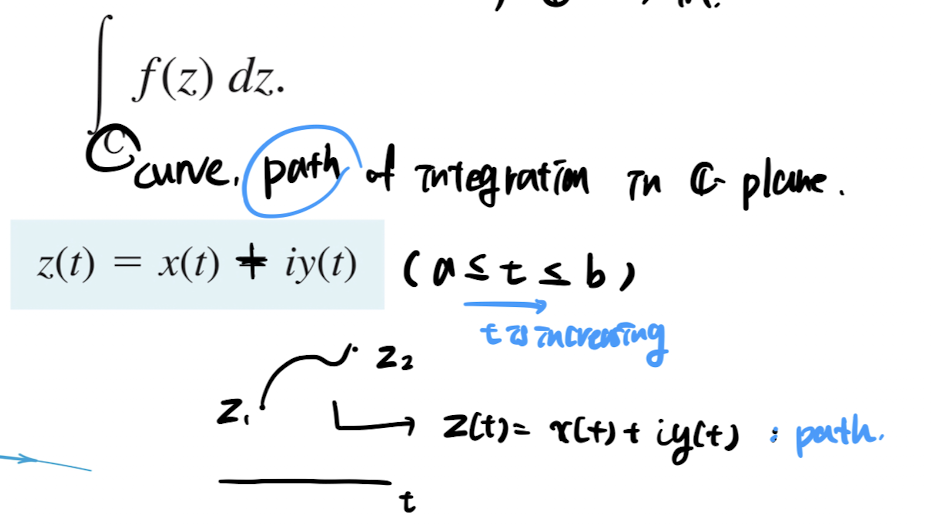 ∫ f(z) dz.
C curve, path of integration in ℂ plane.
z(t) = x(t) + iy(t) (a ≤ t ≤ b)
t is increasing
z₂
z₁
z(t) = x(t) + iy(t) : path.
t